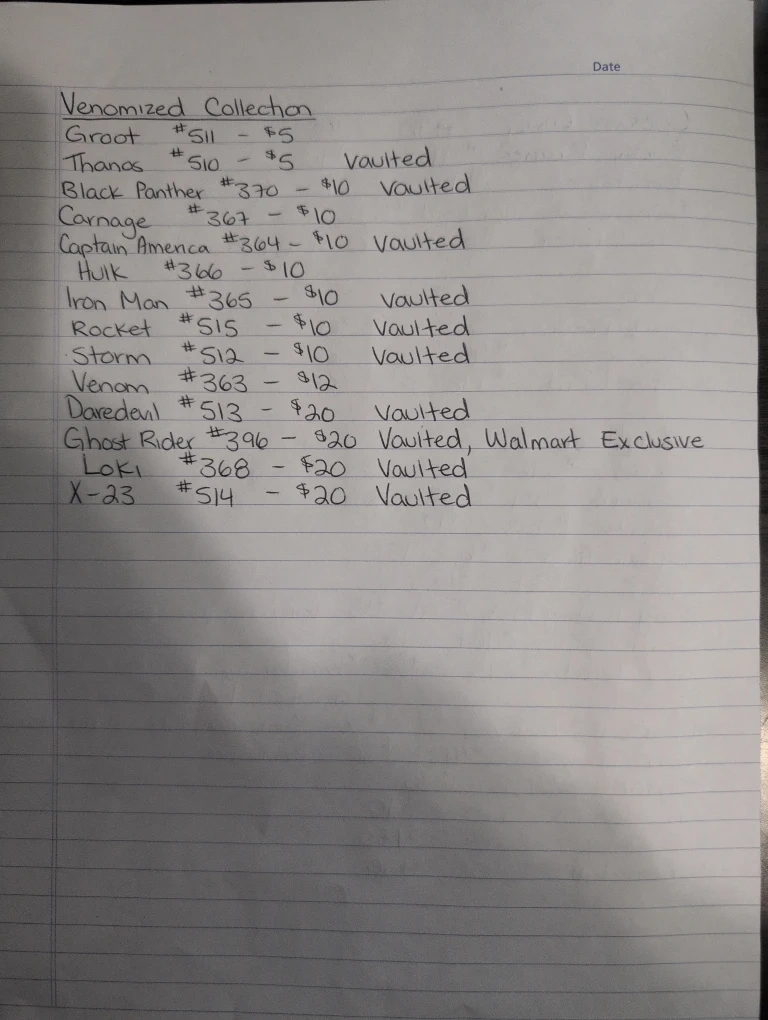 Date
Venomized Collection
Groot #511 - $5
Thanos #510 - $5 Vaulted
Black Panther #370 - $10 Vaulted
Carnage #367 - $10
Captain America #364 - $10 Vaulted
Hulk #366 - $10
Iron Man #365 - $10 Vaulted
Rocket #515 - $10 Vaulted
Storm #512 - $10 Vaulted
Venom #363 - $12
Daredevil #513 - $20 Vaulted
Ghost Rider #396 - $20 Vaulted, Walmart Exclusive
Loki #368 - $20 Vaulted
X-23 #514 - $20 Vaulted